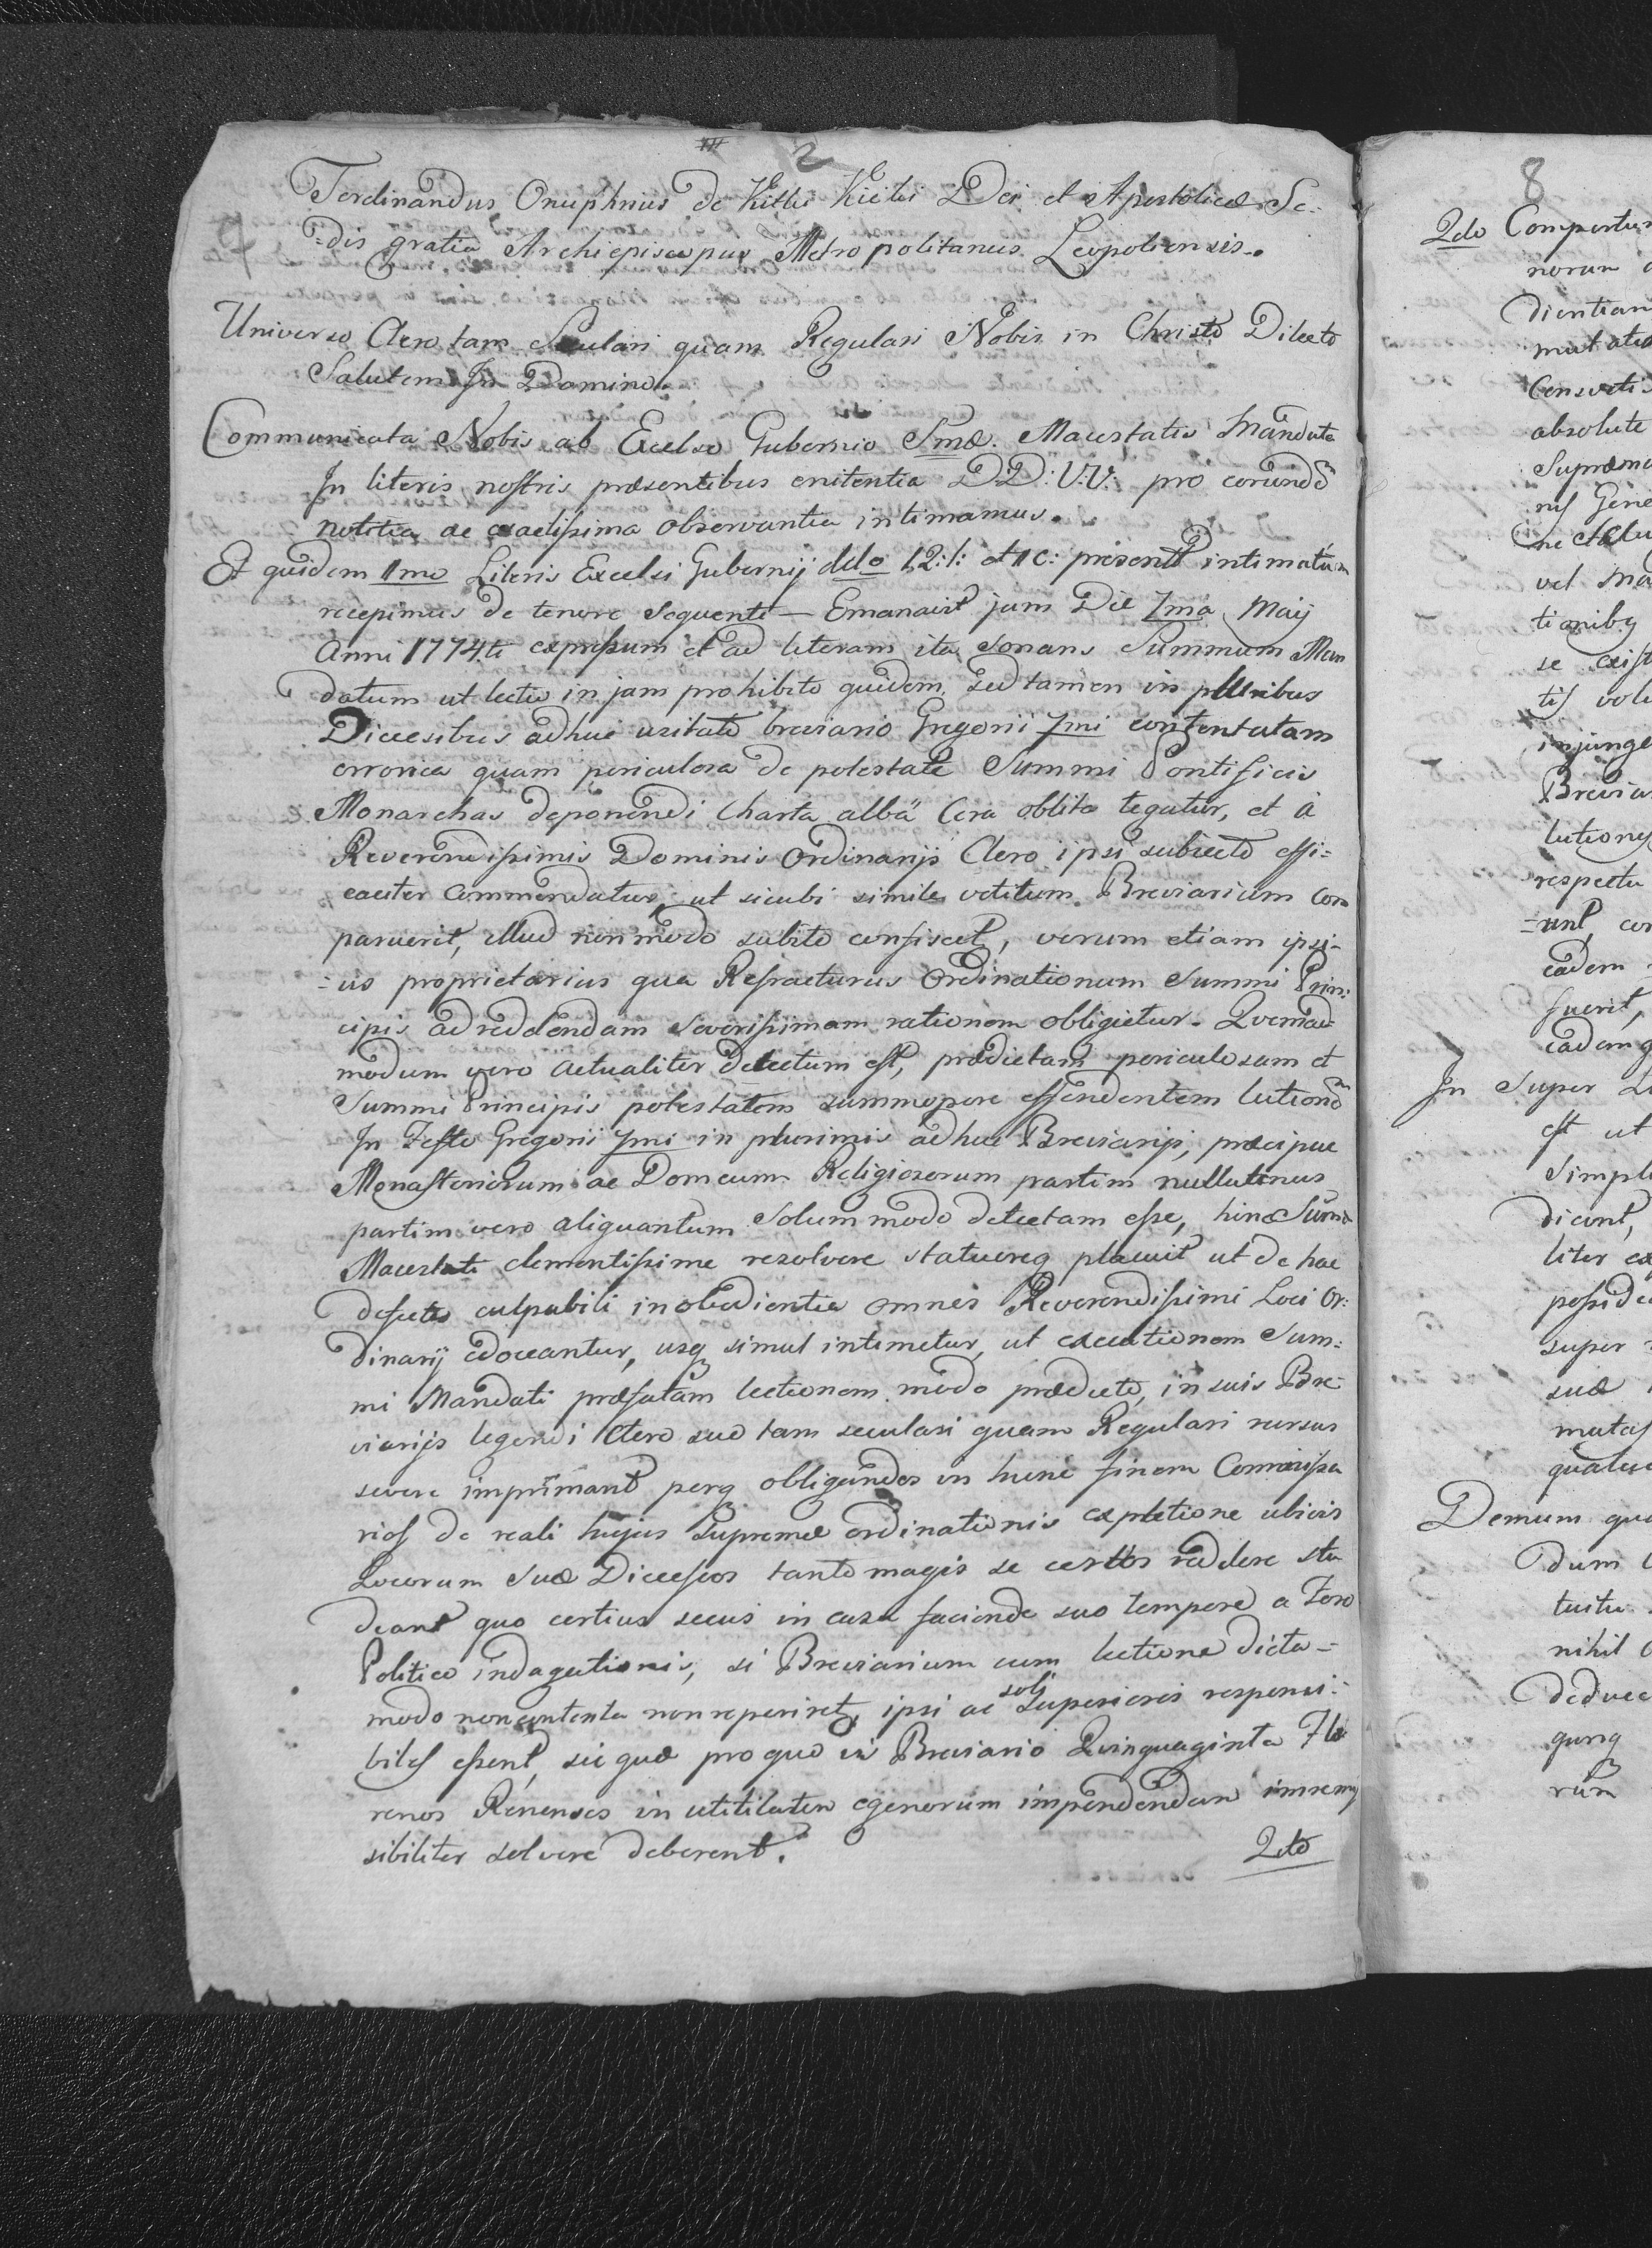 2
Ferdinandus Onuphrius de Kitki Kicki Dei et Apostolicæ Se-
=dis gratia Archiepiscopus Metropolitanus Leopoliensis.
Universo Clero tam Seculari quam Regulari Nobis in Christo Dilecto
Salutem In Domino.
Communicata Nobis ab Excelso Gubernio Smæ. Maiestatis Mandata
In literis nostris præsentibus enitentia DD: VV: pro eorundem
notitia ac exactissima observantia intimamus.
Et quidem 1mo Literis Excelsi Gubernij ddto 12: l: et c: presentis intimatum
recepimus de tenore sequenti — Emanavit jam Die 7ma Maij
Anni 1774ti expressum et ad literam ita sonans Summum Man
datum ut lectio in jam prohibito quidem sed tamen in pluribus
Diœcesibus adhuc usitato breviario Gregorii 7mi contenta tam
erronea quam periculosa de potestate Summi Pontificis
Monarchas deponendi Charta alba Cera oblita tegatur, et à
Reverendissimis Dominis Ordinarijs Clero ipsi subiecto effi=
caciter commendatur, ut sicubi simile vetitum Breviarium com
paruerit, illud non modo subito confiscet, verum etiam ipsi-
=us proprietarius qua Refracturus Ordinationum Summi Prin=
cipis ad reddendam severissimam rationem obligietur. Quemad
modum vero actualiter detectum est, prædictam periculosam et
Summi Principis potestatem summopere offendentem lectionem
In Festo Gregorii 7mi in plurimis adhuc Breviarijs, præcipue
Monasteriorum ac Domeum Religiosorum partim nullatenus
partim vero aliquantum Solummodo detectam esse, hinc Summa
Maiestati clementissime resolvere statuereq placuit ut de hac
defectu culpabili inobedientia omnes Reverendissimi Loci Or=
dinarij edoceantur, usq simul intimetur, ut executionem Sum=
mi Mandati præfatam lectionem modo prædicto, in suis Bre
viarijs legendi Clero suo tam seculari quam Regulari rursus
severe imprimant perq obligandos in hunc finem Commissa
rios de reali hujus Supremæ ordinationis expletione ubivis
Locorum Suæ Diœceseos tanto magis se certos reddere stu
deant quo certius secus in casu faciendæ suo tempore a Foro
Politico indagationis, si Breviarium cum lectione dicto=
modo non contenta non reperiret, ipsi ac soli Superiores responsi=
biles essent, sicque pro quovis Breviario Quinquaginta Flo
renos Rhenenses in utilitatem egenorum impendendam irremis
sibiliter solvere deberent.
2do
8
2do Compertum
norum
dientiam
mutatio
Consvetis
absolute
Suprema
vel Man
tionibq
se exist
tis volu
injunge
Brevia
lectiones
respectu
eadem
fuerit,
eadem q
In Super
est ut
Simpli
dicunt,
liter ex
posside
super
suæ
mutas
quatu
Demum qua
dum
tuitu
nihil
deduce
rum